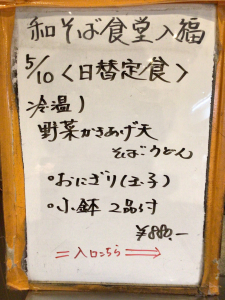 和そば食堂入福
5/10〈日替定食〉
冷温)
野菜かきあげ天
そばorうどん
◦おにぎり(玉子)
◦小鉢 2品付
¥880.-
=入口こちら⇒